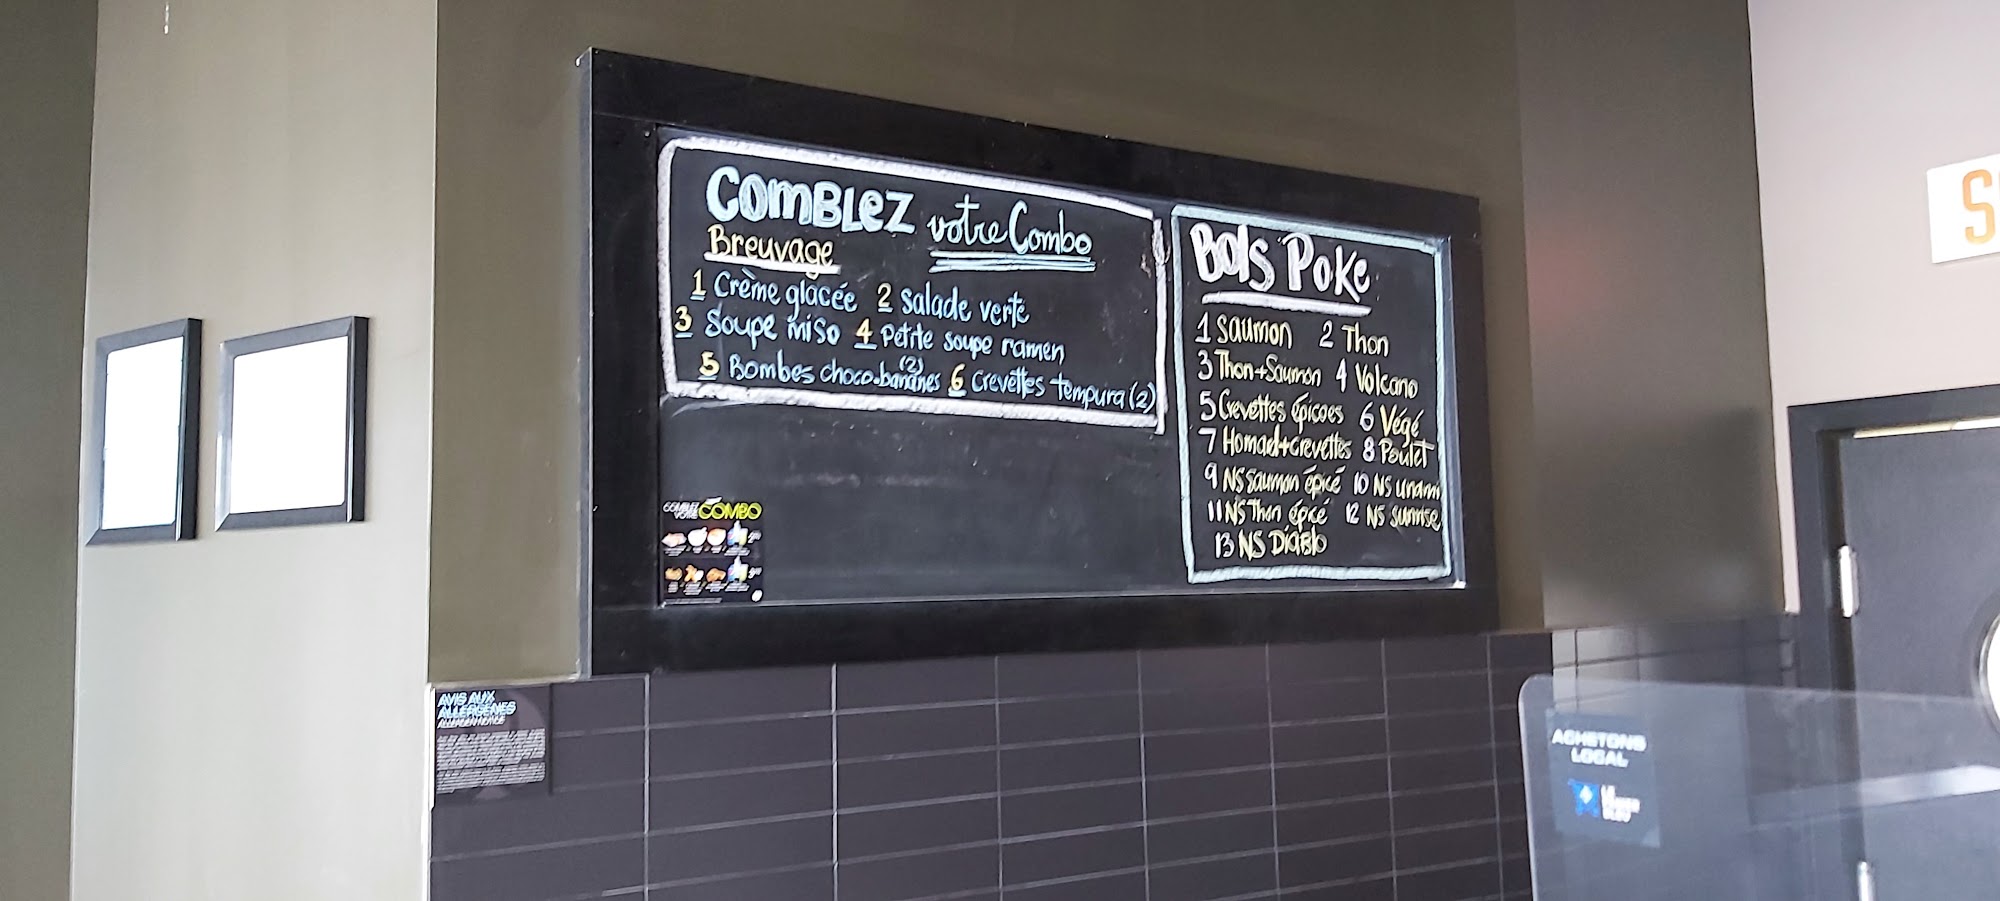 COMBLEZ votre Combo
Breuvage
1 Crème glacée 2 salade verte
3 Soupe miso 4 Petite soupe ramen
5 Bombes choco-bananes (2) 6 Crevettes tempura (2)
BOLS POKE
1 Saumon 2 Thon
3 Thon+Saumon 4 Volcano
5 Crevettes épicées 6 Végé
7 Homard+crevettes 8 Poulet
9 NS Saumon épicé 10 NS unami
11 NS Thon épicé 12 NS sunrise
13 NS Diablo
COMBLEZ
VOTRE COMBO
AVIS AUX
ALLERGÈNES
ALLERGEN NOTICE
ACHETONS
LOCAL
LE
PANIER
BLEU
S